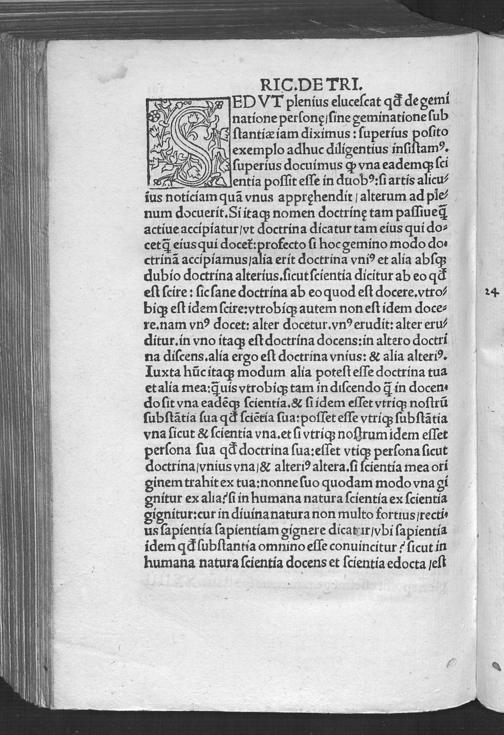 RIC.DE TRI.
SED VT plenius elucescat qđ de gemi
natione personę/sine geminatione sub
stantiæ iam diximus : superius posito
exemplo adhuc diligentius insistamꝰ.
superius docuimus ꝙ vna eademqꝫ sci
entia possit esse in duobꝰ:si artis alicu/
ius noticiam quā vnus appręhendit / alterum ad ple/
num docuerit. Si itaqꝫ nomen doctrinę tam passiue q̃
actiue accipiatur/vt doctrina dicatur tam eius qui do-
cet q̃ eius qui docet̃: profecto si hoc gemino modo do-
ctrinā accipiamus/alia erit doctrina vniꝰ et alia absqꝫ
dubio doctrina alterius.sicut scientia dicitur ab eo qđ
est scire : sic sane doctrina ab eo quod est docere.vtro/
biqꝫ est idem scire:vtrobiqꝫ autem non est idem doce-
re.nam vnꝰ docet: alter docetur.vnꝰ erudit: alter eru/
ditur.in vno itaqꝫ est doctrina docens:in altero doctri
na discens.alia ergo est doctrina vnius: & alia alteriꝰ.
Iuxta hūc itaqꝫ modum alia potest esse doctrina tua
et alia mea:q̃uis vtrobiqꝫ tam in discendo q̃ in docen-
do sit vna eadēqꝫ scientia.& si idem esset vtriqꝫ nostrū
substātia sua qđ sciētia sua: posset esse vtriqꝫ substātia
vna sicut & scientia vna.et si vtriqꝫ nostrum idem esset
persona sua qđ doctrina sua:esset vtiqꝫ persona sicut
doctrina/vnius vna/& alteriꝰ altera.si scientia mea ori
ginem trahit ex tua:nonne suo quodam modo vna gi
gnitur ex alia?si in humana natura scientia ex scientia
gignitur:cur in diuina natura non multo fortius/recti-
us sapientia sapientiam gignere dicatur/vbi sapientia
idem qđ substantia omnino esse conuincitur ? sicut in
humana natura scientia docens et scientia edocta /est
24